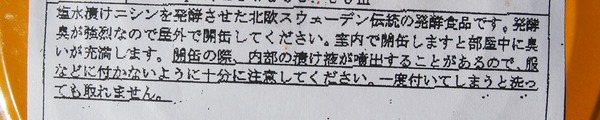 塩水漬けニシンを発酵させた北欧スウェーデン伝統の発酵食品です。発酵
臭が強烈なので屋外で開缶してください。室内で開缶しますと部屋中に臭
いが充満します。開缶の際、内部の漬け液が噴出することがあるので、服
などに付かないように十分に注意してください。一度付いてしまうと洗っ
ても取れません。